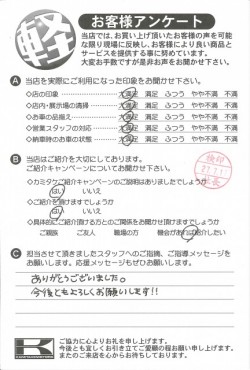 軽
お客様アンケート
当店では、お買い上げ頂いたお客様の声を可能
な限り現場に反映し、お客様により良い商品と
サービスを提供する事に努めています。
大変お手数ですが是非お声をお聞かせ下さい。
A 当店を実際にご利用になった印象をお聞かせ下さい。
◇店の印象 大満足 満足 ふつう やや不満 不満
◇店内・展示場の清掃 大満足 満足 ふつう やや不満 不満
◇お車の品揃え 大満足 満足 ふつう やや不満 不満
◇営業スタッフの対応 大満足 満足 ふつう やや不満 不満
◇納車時のお車の状態 大満足 満足 ふつう やや不満 不満
B 当店はご紹介を大切にしております。
ご紹介キャンペーンについてお聞かせ下さい。
◇カミタケご紹介キャンペーンのご説明はありましたでしょうか
はい いいえ
◇ご紹介を頂けますでしょうか
はい いいえ
◇具体的にご紹介頂ける方とのご関係をお聞かせ頂けますでしょうか
ご親族 ご友人 職場の方 機会があればご紹介したい
C 担当させて頂きましたスタッフへのご指摘、ご指導メッセージを
お願いします。応援メッセージもぜひお願いします。
ありがとうございました。
今後ともよろしくお願いします!!
ご協力に心よりお礼を申し上げます。
今後とも宜しくお引き立てご愛顧の程お願い申し上げます。
またのご来店を心からお待ちしております。